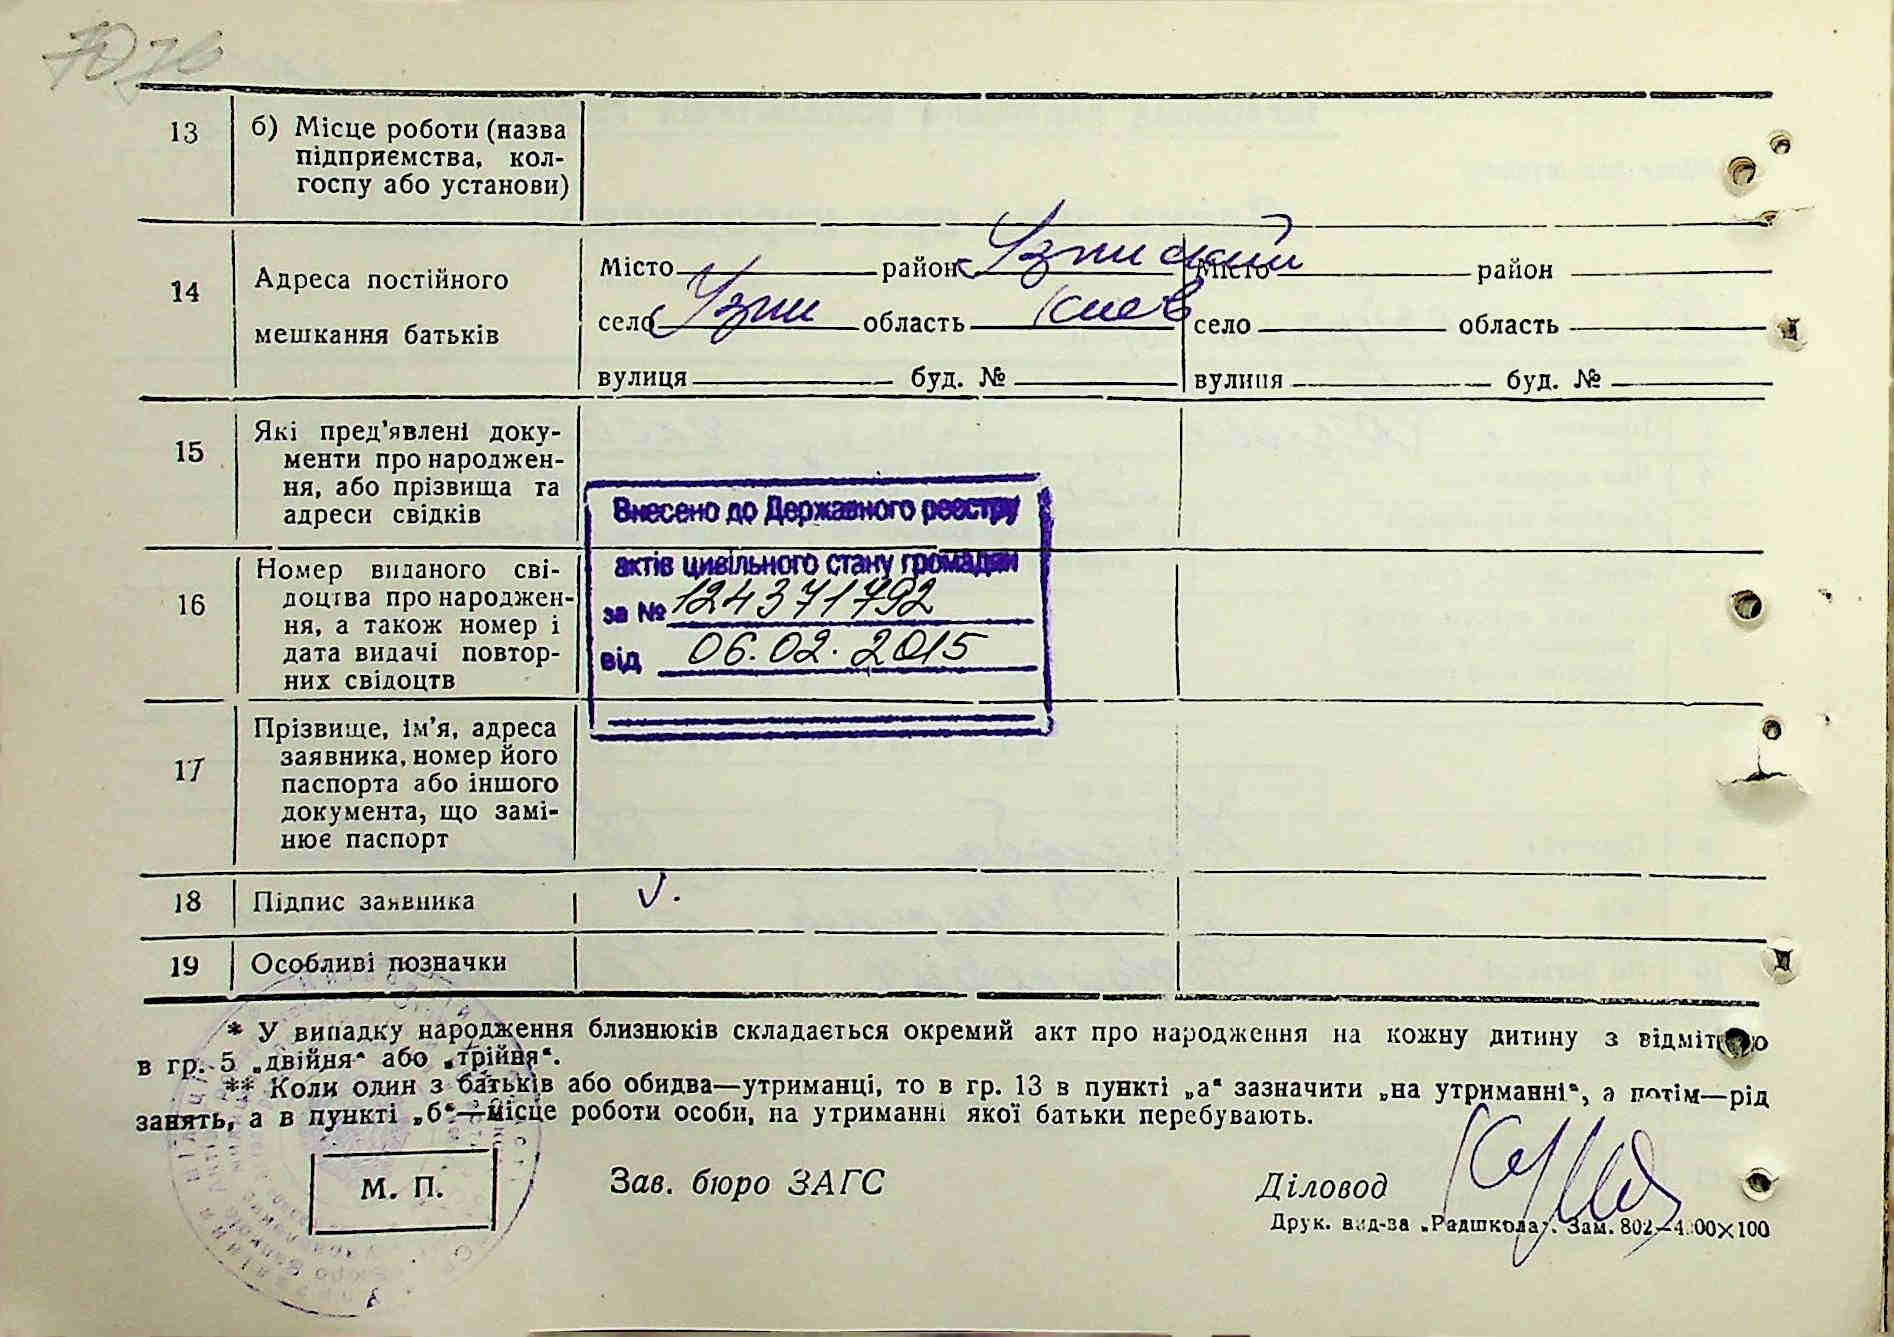 13 б) Місце роботи (назва
підприємства, кол-
госпу або установи)
14 Адреса постійного
мешкання батьків
Місто район Узинский Місто район
село Узин область Киев село область
вулиця буд. № вулиця буд. №
15 Які пред'явлені доку-
менти про народжен-
ня, або прізвища та
адреси свідків
Внесено до Державного реєстру
актів цивільного стану громадян
за № 124371792
від 06.02.2015
16 Номер виданого сві-
доцтва про народжен-
ня, а також номер і
дата видачі повтор-
них свідоцтв
17 Прізвище, ім'я, адреса
заявника, номер його
паспорта або іншого
документа, що замі-
нює паспорт
18 Підпис заявника
19 Особливі позначки
* У випадку народження близнюків складається окремий акт про народження на кожну дитину з відміткою
в гр. 5 „двійня“ або „трійня“.
** Коли один з батьків або обидва—утриманці, то в гр. 13 в пункті „а“ зазначити „на утриманні“, а потім—рід
занять, а в пункті „б“—місце роботи особи, на утриманні якої батьки перебувають.
М. П. Зав. бюро ЗАГС Діловод
Друк. вид-ва „Радшкола“. Зам. 802—4.00×100